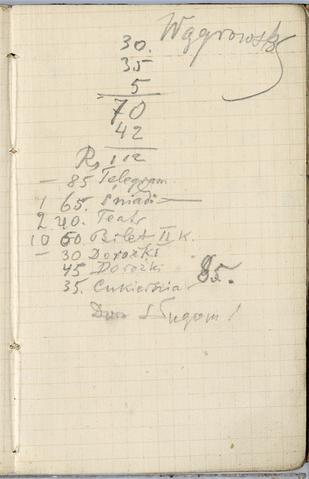 Wągrowski
30.
35
5
70
42
R. 112
— 85 Telegram
1 65. Śniad
2 40. Teatr
10 60. Bilet II K.
— 30 Dorożki
45 Dorożki
35. Cukiernia 85.